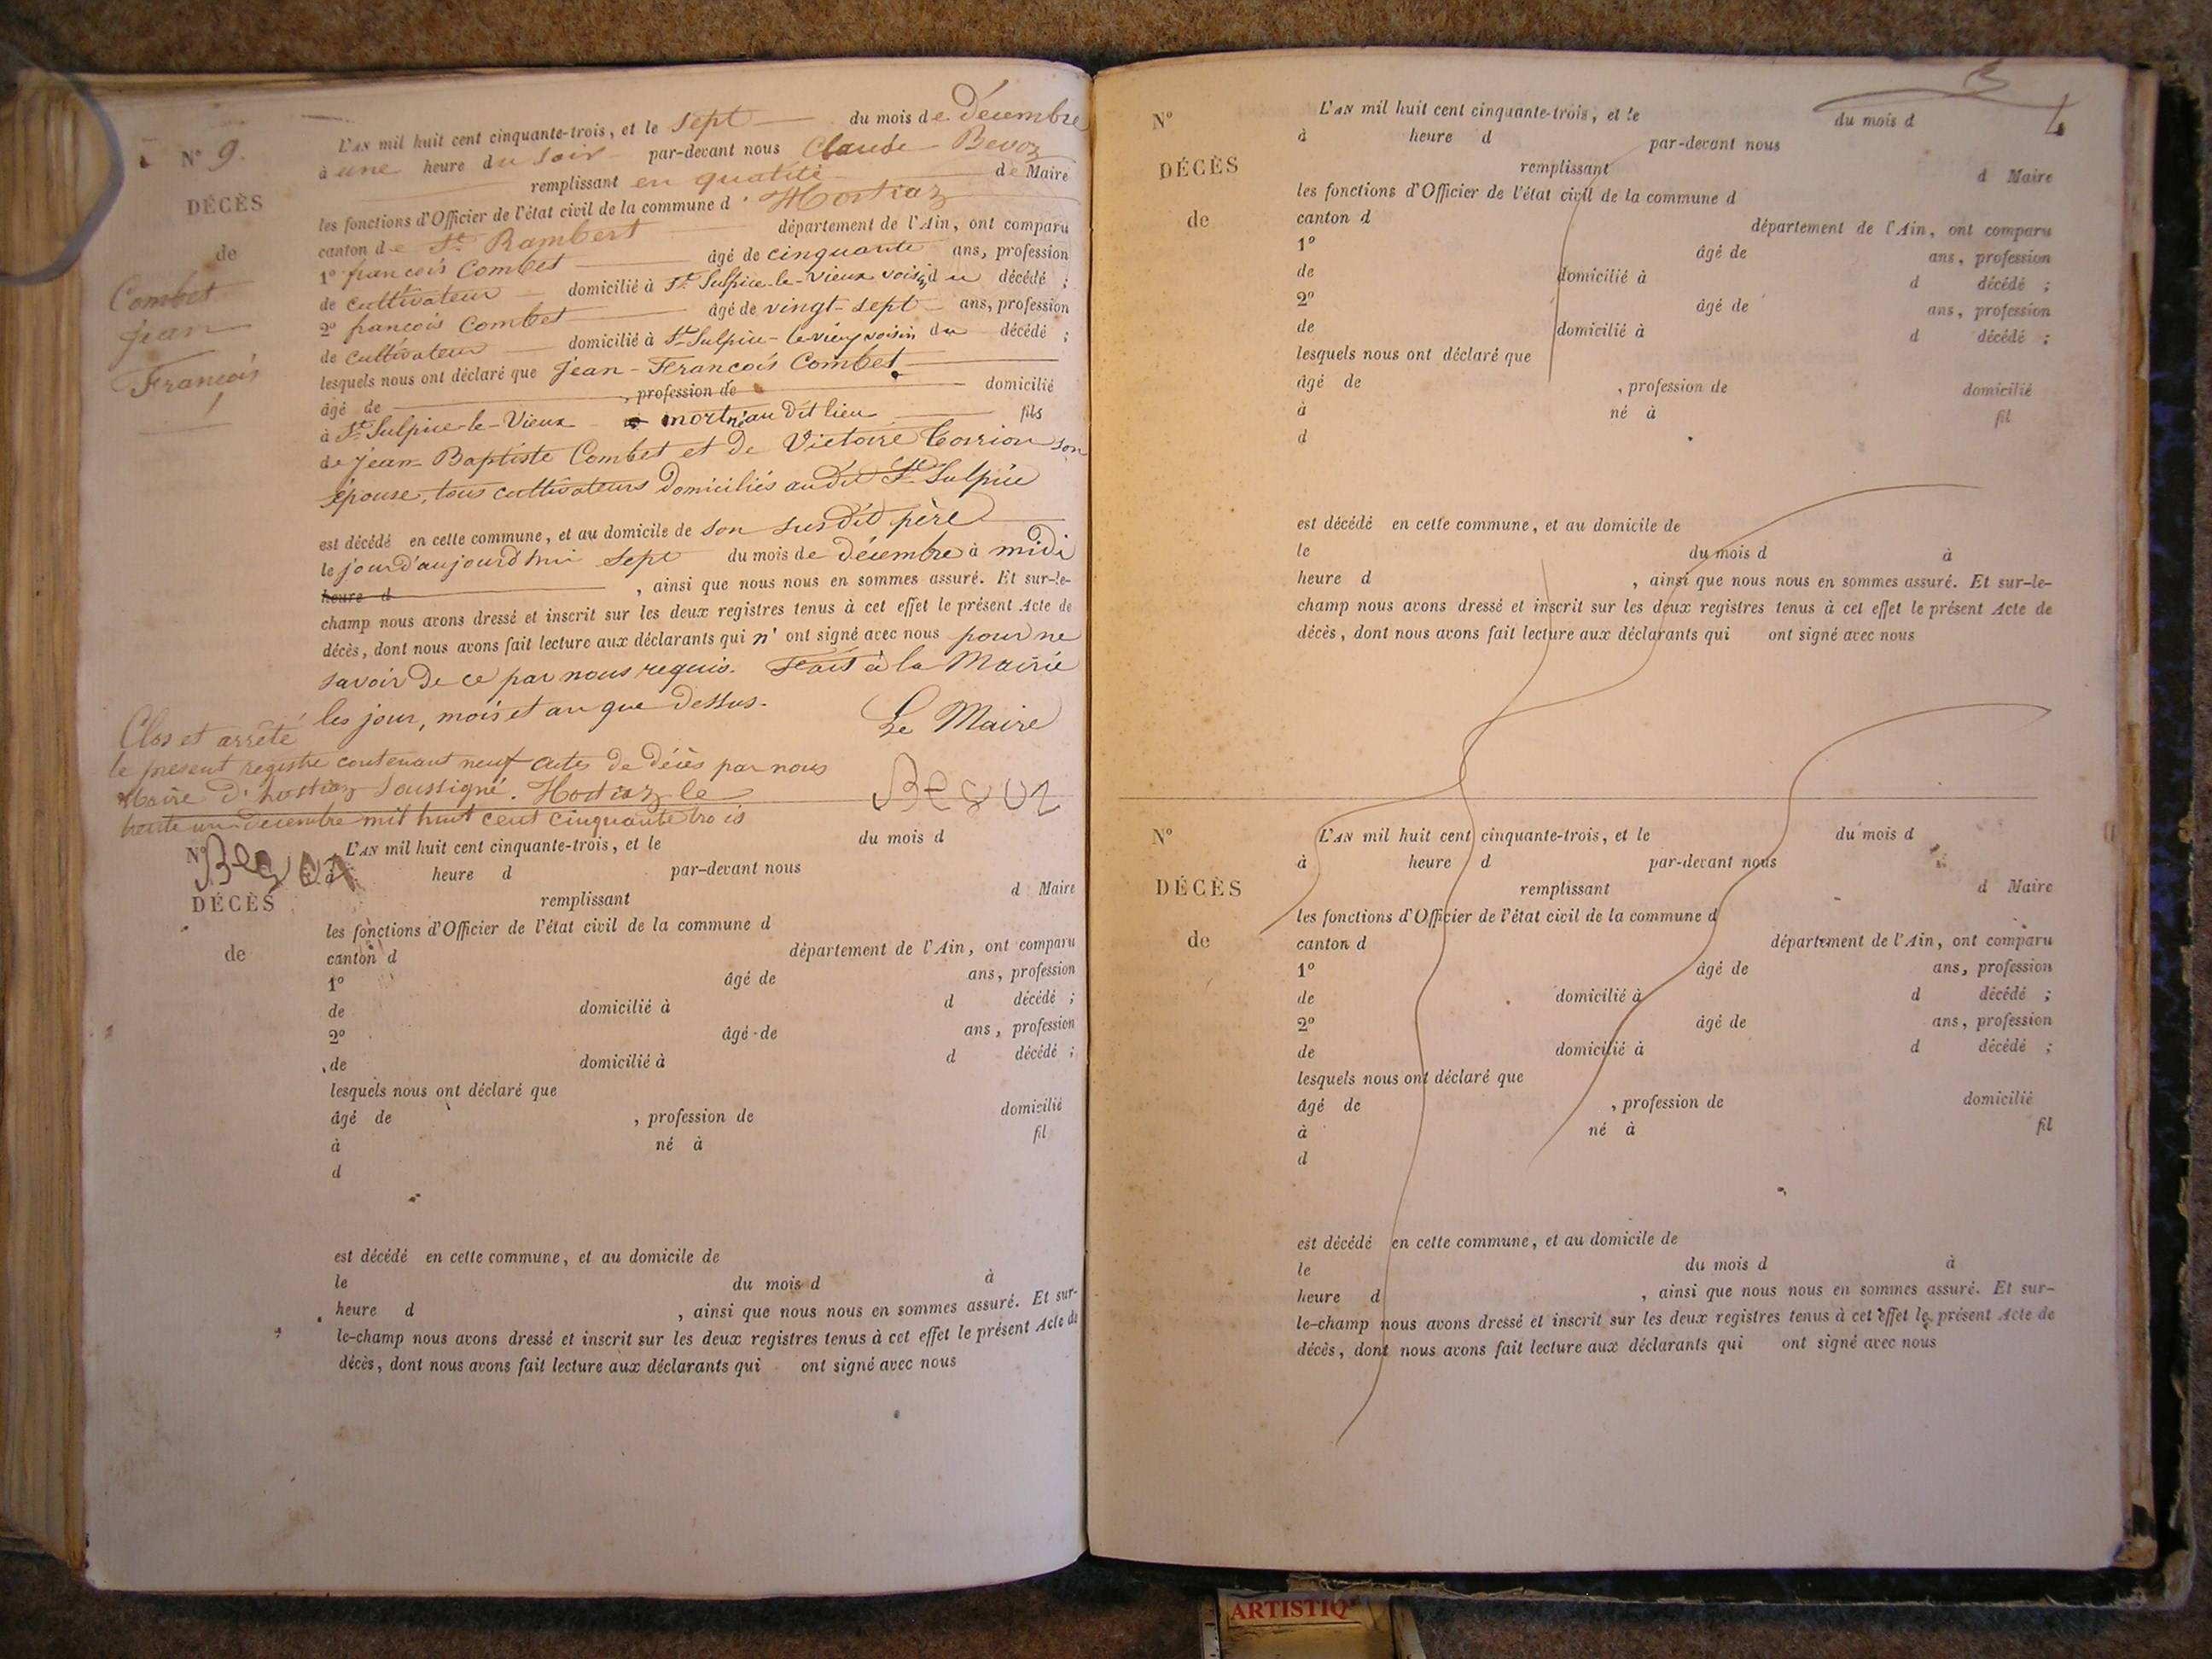 N° 9.
DÉCÈS
de
Combet
Jean
François
L'AN mil huit cent cinquante-trois, et le sept du mois de décembre
à une heure du soir par-devant nous Claude Bevoz
remplissant en qualité de Maire
les fonctions d'Officier de l'état civil de la commune d'Hostiaz
canton de St Rambert département de l'Ain, ont comparu
1° françois Combet âgé de cinquante ans, profession
de cultivateur domicilié à St Sulpice-le-Vieux voisin du décédé ;
2° françois Combet âgé de vingt-sept ans, profession
de cultivateur domicilié à St Sulpice-le-vieux voisin du décédé ;
lesquels nous ont déclaré que Jean-François Combet
âgé de , profession de domicilié
à St Sulpice-le-Vieux mort né au dit lieu fils
de Jean-Baptiste Combet et de Victoire son
épouse, tous cultivateurs domiciliés au dit St Sulpice
est décédé en cette commune, et au domicile de son susdit père
le jourd'aujourd'hui sept du mois de décembre à midi
heure d , ainsi que nous nous en sommes assuré. Et sur-le-
champ nous avons dressé et inscrit sur les deux registres tenus à cet effet le présent Acte de
décès, dont nous avons fait lecture aux déclarants qui n'ont signé avec nous pour ne
savoir de ce par nous requis. Fait à la Mairie
les jour, mois et an que dessus.
Le Maire
Bevoz
Clos et arrêté
le présent registre contenant neuf actes de décès par nous
Maire d'hostiaz soussigné. Hostiaz le
trente un décembre mil huit cent cinquante trois
Bevoz
N°
DÉCÈS
de
L'AN mil huit cent cinquante-trois, et le du mois d
à heure d par-devant nous
remplissant d Maire
les fonctions d'Officier de l'état civil de la commune d
canton d département de l'Ain, ont comparu
1° âgé de ans, profession
de domicilié à d décédé ;
2° âgé de ans, profession
de domicilié à d décédé ;
lesquels nous ont déclaré que
âgé de , profession de domicilié
à né à fil
d
est décédé en cette commune, et au domicile de
le du mois d à
heure d , ainsi que nous nous en sommes assuré. Et sur-
le-champ nous avons dressé et inscrit sur les deux registres tenus à cet effet le présent Acte de
décès, dont nous avons fait lecture aux déclarants qui ont signé avec nous
N°
DÉCÈS
de
L'AN mil huit cent cinquante-trois, et le du mois d
à heure d par-devant nous
remplissant d Maire
les fonctions d'Officier de l'état civil de la commune d
canton d département de l'Ain, ont comparu
1° âgé de ans, profession
de domicilié à d décédé ;
2° âgé de ans, profession
de domicilié à d décédé ;
lesquels nous ont déclaré que
âgé de , profession de domicilié
à né à fil
d
est décédé en cette commune, et au domicile de
le du mois d à
heure d , ainsi que nous nous en sommes assuré. Et sur-le-
champ nous avons dressé et inscrit sur les deux registres tenus à cet effet le présent Acte de
décès, dont nous avons fait lecture aux déclarants qui ont signé avec nous
N°
DÉCÈS
de
L'AN mil huit cent cinquante-trois, et le du mois d
à heure d par-devant nous
remplissant d Maire
les fonctions d'Officier de l'état civil de la commune d
canton d département de l'Ain, ont comparu
1° âgé de ans, profession
de domicilié à d décédé ;
2° âgé de ans, profession
de domicilié à d décédé ;
lesquels nous ont déclaré que
âgé de , profession de domicilié
à né à fil
d
est décédé en cette commune, et au domicile de
le du mois d à
heure d , ainsi que nous nous en sommes assuré. Et sur-
le-champ nous avons dressé et inscrit sur les deux registres tenus à cet effet le présent Acte de
décès, dont nous avons fait lecture aux déclarants qui ont signé avec nous
ARTISTIQ